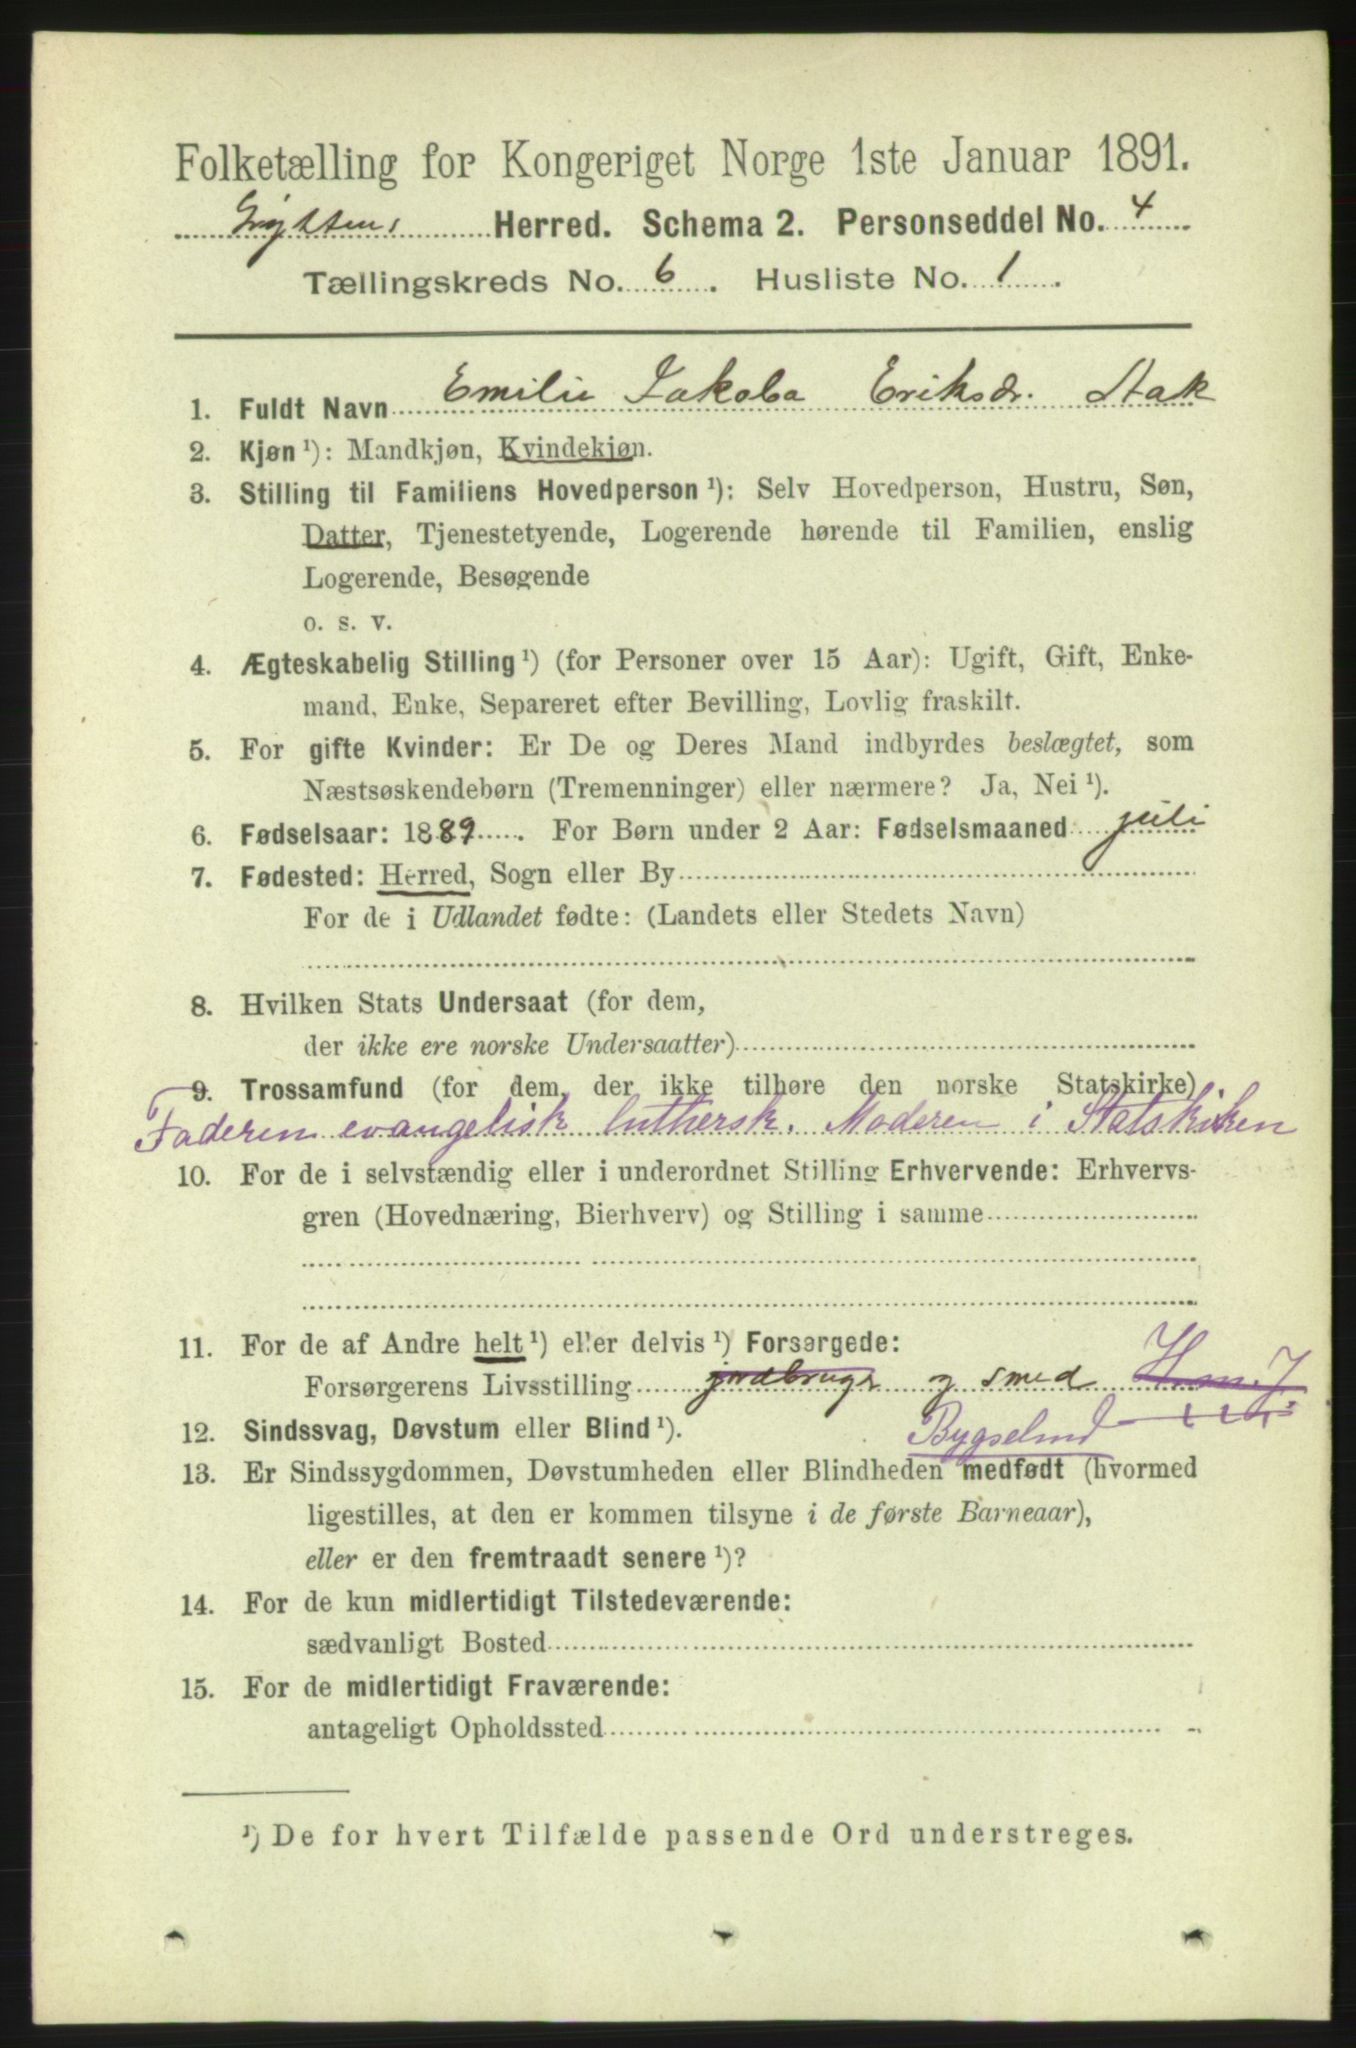 Folketælling for Kongeriget Norge 1ste Januar 1891.
Gryttens Herred. Schema 2. Personseddel No. 4
Tællingskreds No. 6. Husliste No. 1.
1. Fuldt Navn Emilie Jakoba Eriksdr. Stak
2. Kjøn ¹): Mandkjøn, Kvindekjøn.
3. Stilling til Familiens Hovedperson ¹): Selv Hovedperson, Hustru, Søn,
Datter, Tjenestetyende, Logerende hørende til Familien, enslig
Logerende, Besøgende
o. s. v.
4. Ægteskabelig Stilling ¹) (for Personer over 15 Aar): Ugift, Gift, Enke-
mand, Enke, Separeret efter Bevilling, Lovlig fraskilt.
5. For gifte Kvinder: Er De og Deres Mand indbyrdes beslægtet, som
Næstsøskendebørn (Tremenninger) eller nærmere? Ja, Nei ¹).
6. Fødselsaar: 1889. For Børn under 2 Aar: Fødselsmaaned juli
7. Fødested: Herred, Sogn eller By
For de i Udlandet fødte: (Landets eller Stedets Navn)
8. Hvilken Stats Undersaat (for dem,
der ikke ere norske Undersaatter)
9. Trossamfund (for dem, der ikke tilhøre den norske Statskirke)
Faderen evangelisk luthersk. Moderen i Statskirken
10. For de i selvstændig eller i underordnet Stilling Erhvervende: Erhvervs-
gren (Hovednæring, Bierhverv) og Stilling i samme
11. For de af Andre helt ¹) eller delvis ¹) Forsørgede:
Forsørgerens Livsstilling jordbruger og smed
Bygselmd
12. Sindssvag, Døvstum eller Blind ¹).
13. Er Sindssygdommen, Døvstumheden eller Blindheden medfødt (hvormed
ligestilles, at den er kommen tilsyne i de første Barneaar),
eller er den fremtraadt senere ¹)?
14. For de kun midlertidigt Tilstedeværende:
sædvanligt Bosted
15. For de midlertidigt Fraværende:
antageligt Opholdssted
¹) De for hvert Tilfælde passende Ord understreges.